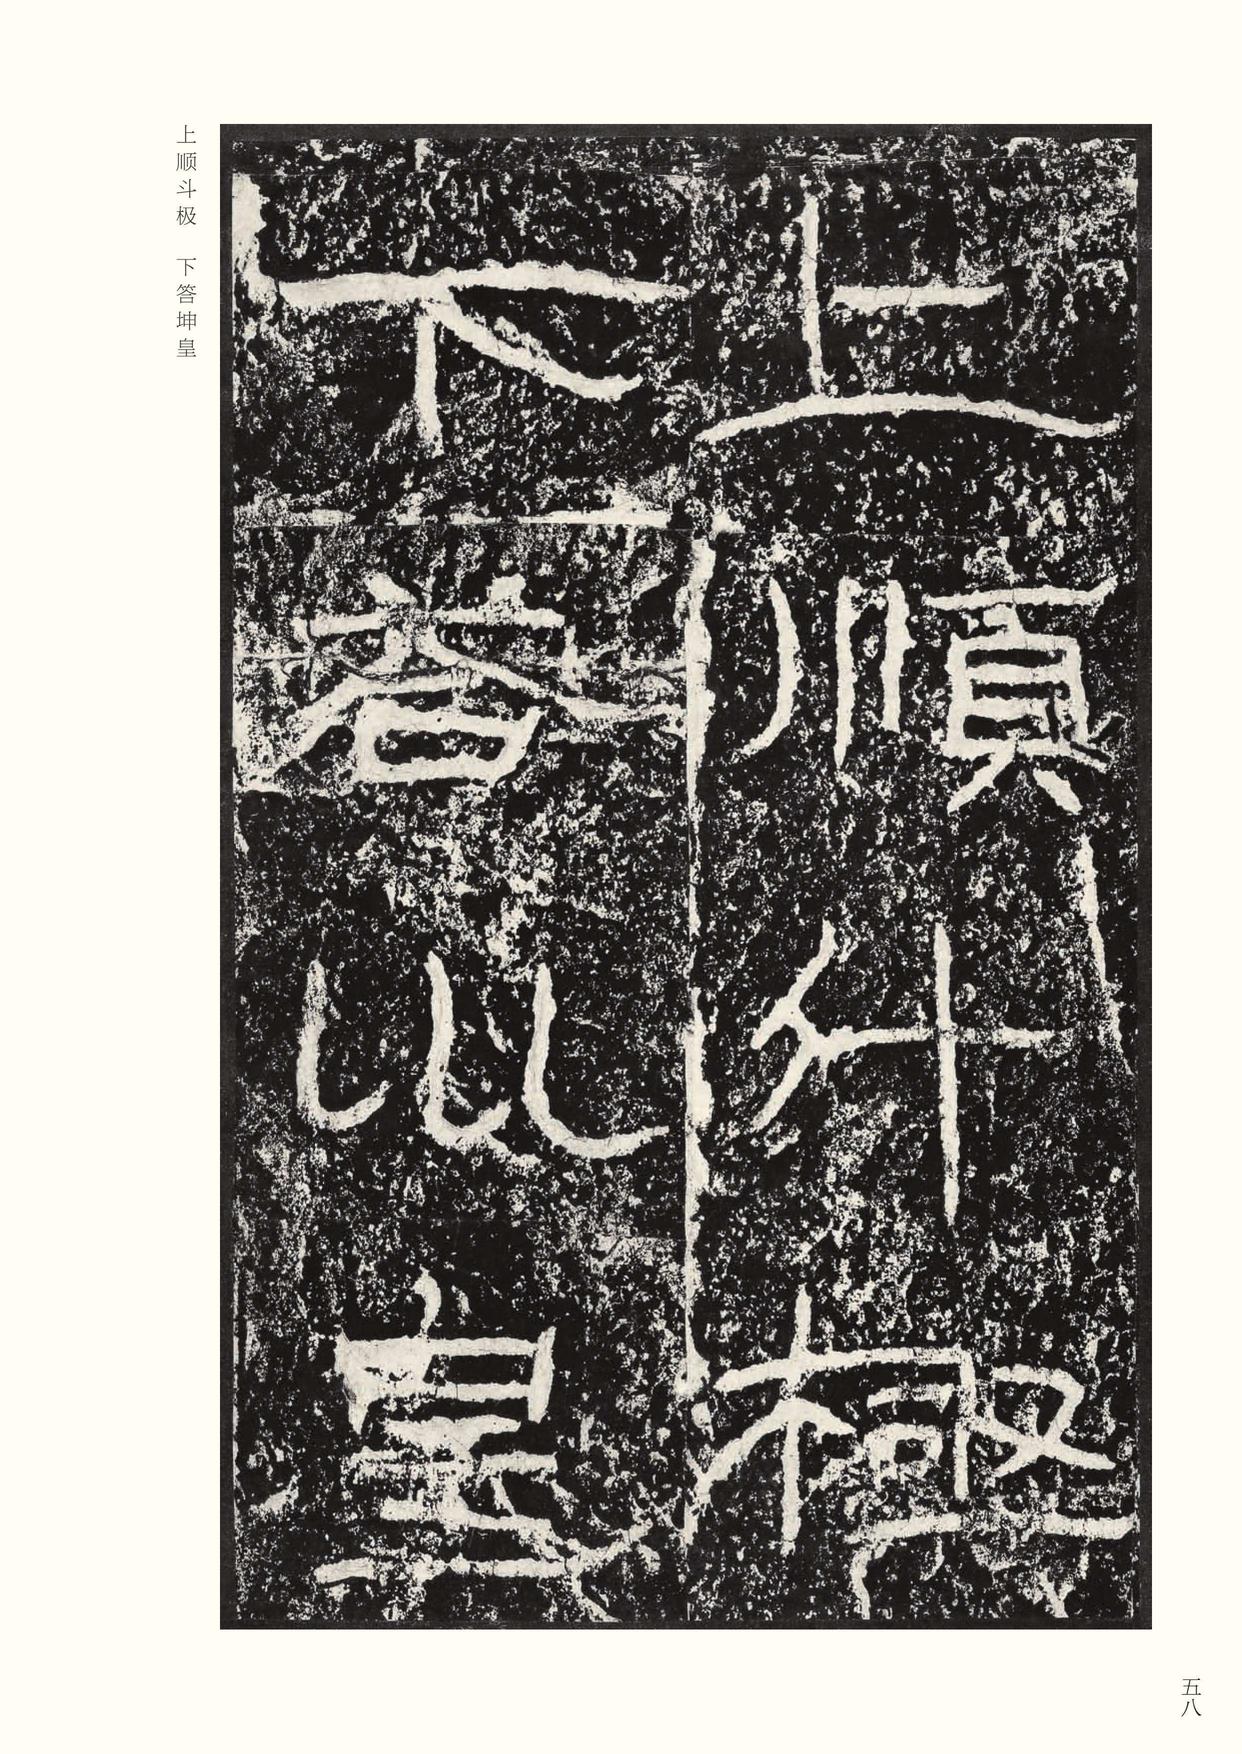 上順斗極
下荅巛皇
上顺斗极　下答坤皇
五八